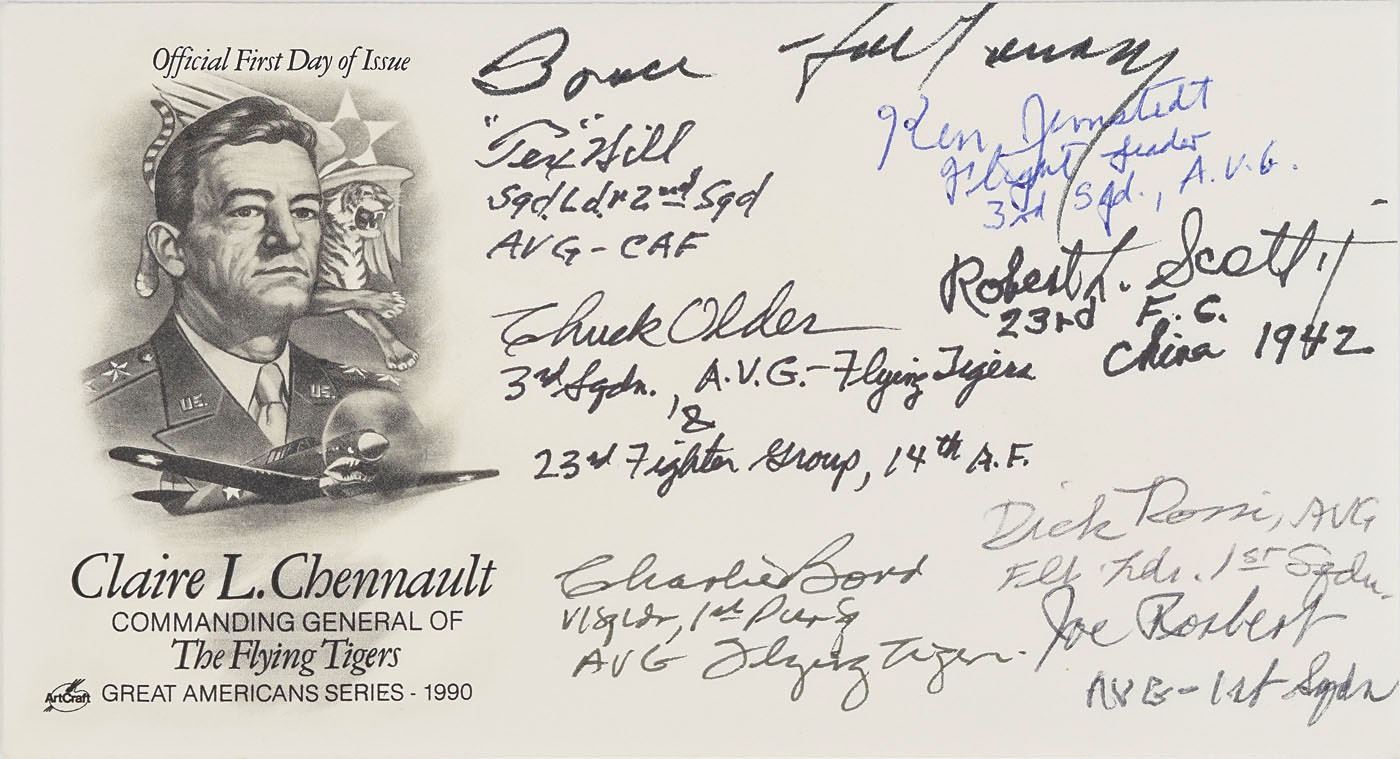 Official First Day of Issue
Claire L. Chennault
COMMANDING GENERAL OF
The Flying Tigers
ArtCraft GREAT AMERICANS SERIES - 1990
US.
US.
Bruce
"Tex" Hill
Sqd. Ldr 2nd Sqd
AVG - CAF
Ken Jernstedt
Flight Leader
3rd Sqd., A.V.G.
Robert L. Scott
23rd F.G.
China 1942
Chuck Older
3rd Sqdn., A.V.G. - Flying Tigers
&
23rd Fighter Group, 14th A.F.
Charlie Bond
V/SqLdr, 1st Pur Sq
AVG Flying Tigers
Dick Rossi, AVG
Flt Ldr. 1st Sqdn.
Joe Rosbert
AVG - 1st Sqdn